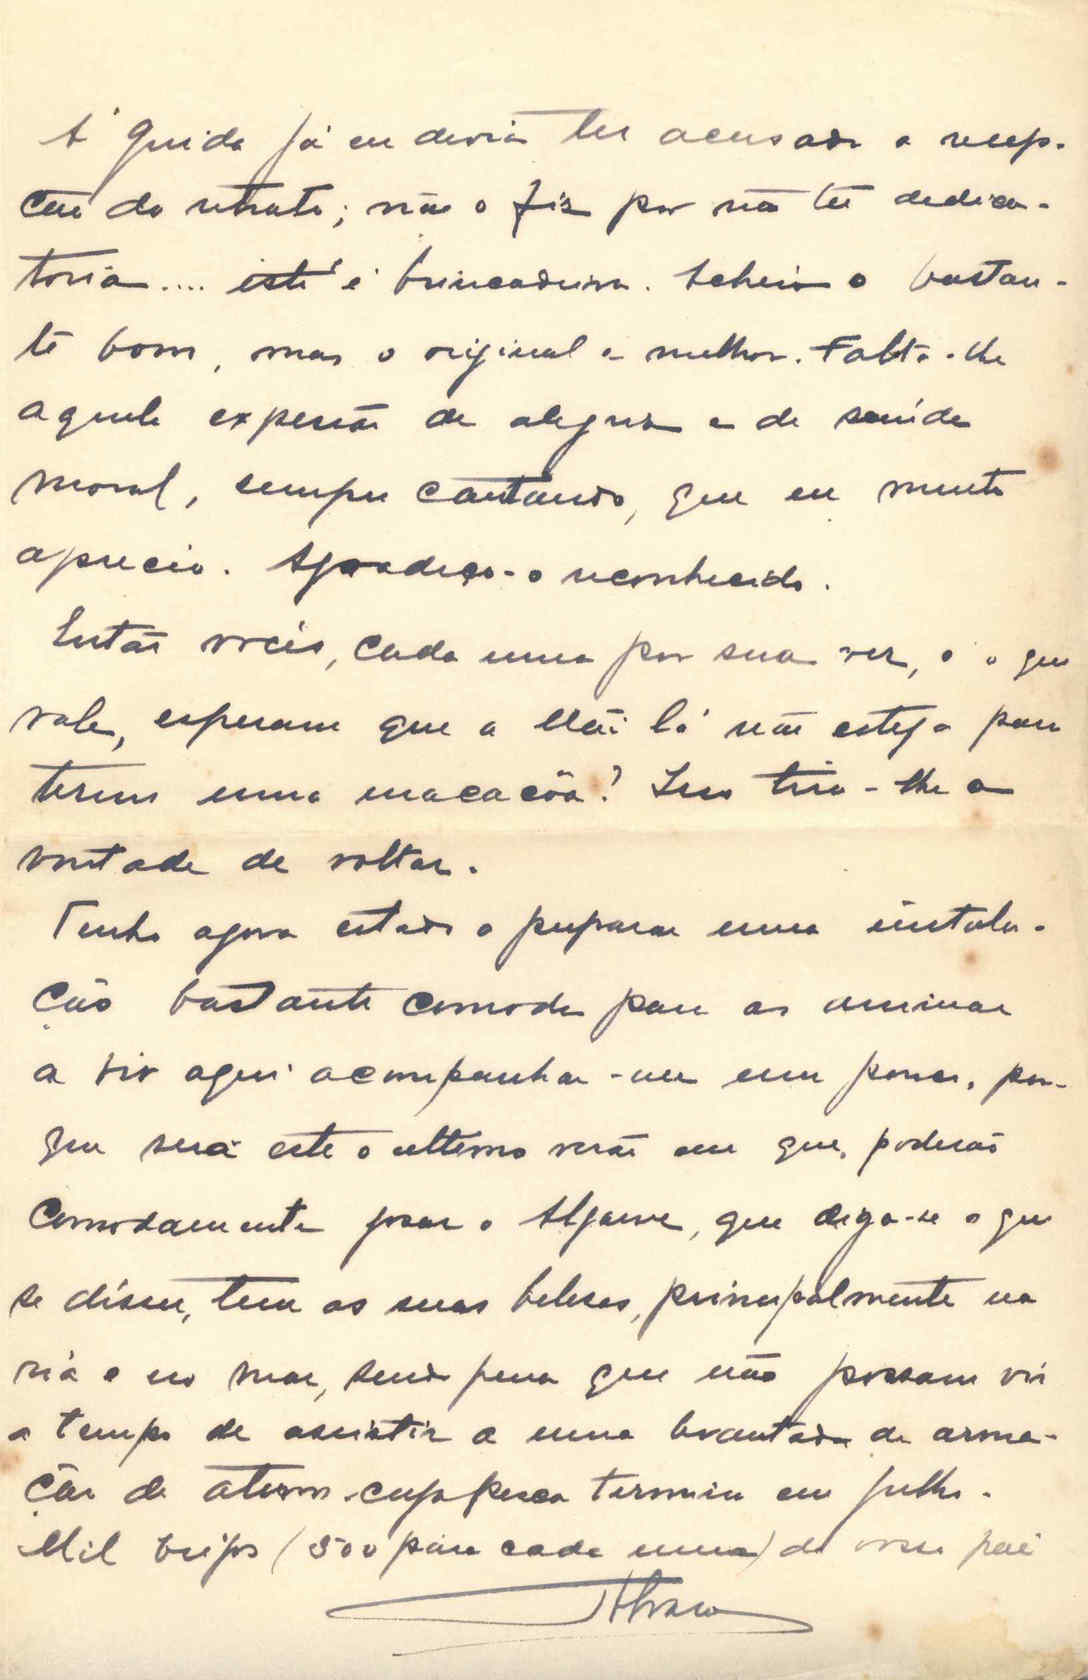 A' Guida já eu devia ter acusado a recep-
ção do retrato; não o fiz por não ter dedica-
toria.... isto é brincadeira. Achei-o bastan-
te bom, mas o original é melhor. Falta-lhe
aquela expressão de alegria e de saúde
moral, sempre cantando, que eu muito
aprecio. Agradeço-o reconhecido.
Então vocês, cada uma por sua vez, é o que
vale, esperam que a Mãi lá não esteja para
terem uma macacôa? Isso tira-lhe a
vontade de voltar.
Tenho agora estado a preparar uma instala-
ção bastante comoda para as animar
a vir aqui acompanhar-me um pouco, por-
que será este o ultimo verão em que, poderão
comodamente gosar o Algarve, que diga-se o que
se disser, tem as suas belesas, principalmente na
ria e no mar, sendo pena que não possam vir
a tempo de assistir a uma levantada de arma-
ção de atum cuja pesca termina em Julho.
Mil beijos (500 para cada uma) do vosso pai
Alvaro